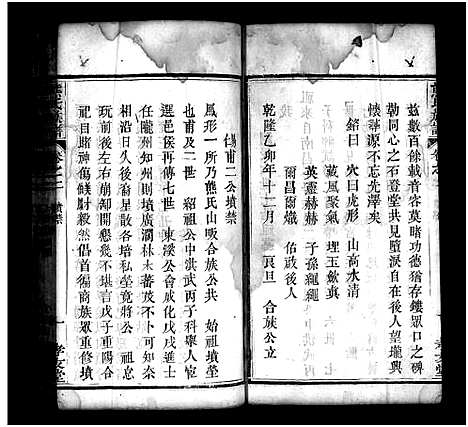 茲數百餘載音容莫睹功德猶存鏤眾口之碑
勒同心之石登堂共見墮淚自在後人望壠興
懷尋源不忘先澤矣
銘曰 穴曰虎形 山高水清
藏風聚氣 埋玉歛真
英靈赫赫 子孫繩繩
爾昌爾熾 佑啟後人
乾隆乙卯年十二月 穀旦 合族公立
甫二公墳禁
鳳形一所乃熊氏山畈合族公共 始祖墳塋
也及二世 紹祖公中洪武丙子科舉人官
選邑侯再傳七世 東溪公會成化戊戌進士
任隴州知州則墳廣濶林木蕃茂不卜可知矣
相沿日久後裔星散各培私塋竟將公 祖忘
玩前後左右崩卻開懇不幾於戊子重陽合
祀目睹神傷傾尉毅然倡首徧商族眾重修墳
孝友堂